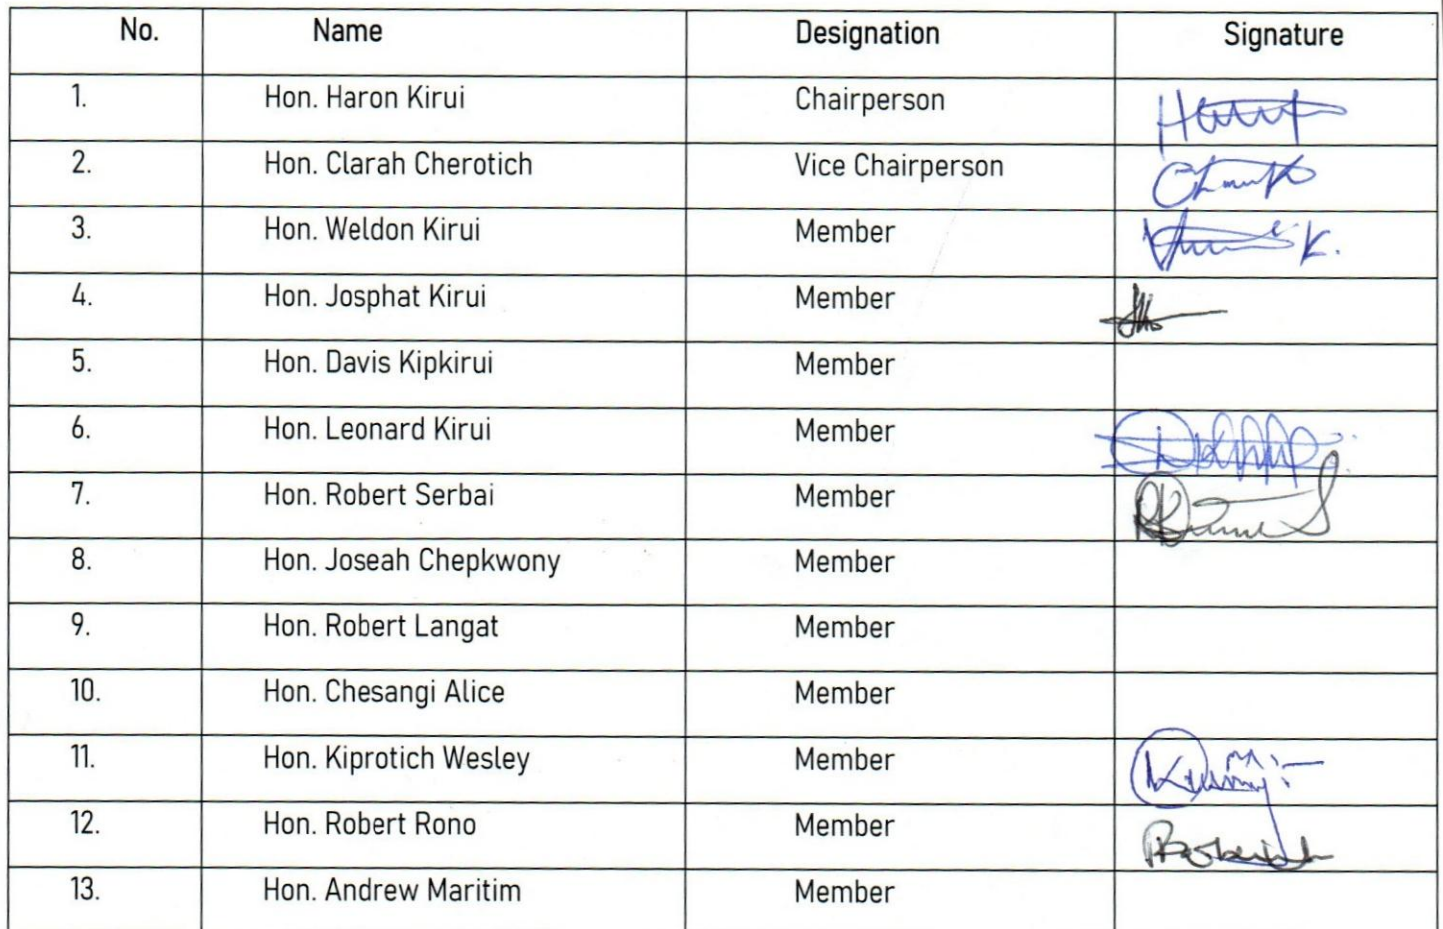 No. Name Designation Signature
1. Hon. Haron Kirui Chairperson
2. Hon. Clarah Cherotich Vice Chairperson
3. Hon. Weldon Kirui Member
4. Hon. Josphat Kirui Member
5. Hon. Davis Kipkirui Member
6. Hon. Leonard Kirui Member
7. Hon. Robert Serbai Member
8. Hon. Joseah Chepkwony Member
9. Hon. Robert Langat Member
10. Hon. Chesangi Alice Member
11. Hon. Kiprotich Wesley Member
12. Hon. Robert Rono Member
13. Hon. Andrew Maritim Member